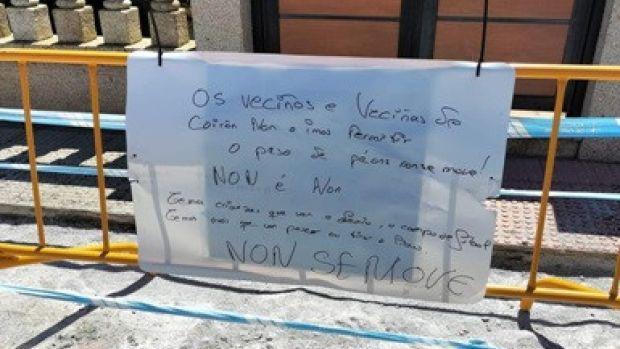 Os veciños e Veciñas do
Coirón Non o imos Permitir
O paso de peóns non se move!
NON é Non
Temos crianzas que van o , o campo de fútbol
Temos que van pasar
NON SE MOVE